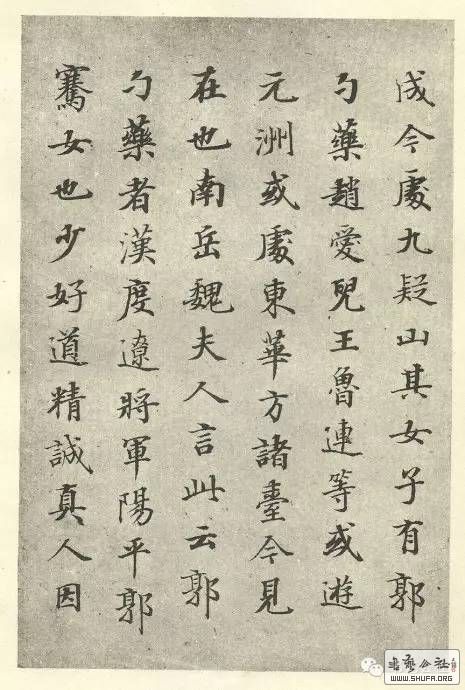 成今處九疑山其女子有郭
勺藥趙愛兒王魯連等或遊
元洲或處東華方諸臺今見
在也南岳魏夫人言此云郭
勺藥者漢度遼將軍陽平郭
騫女也少好道精誠真人因
書藝公社
WWW.SHUFA.ORG